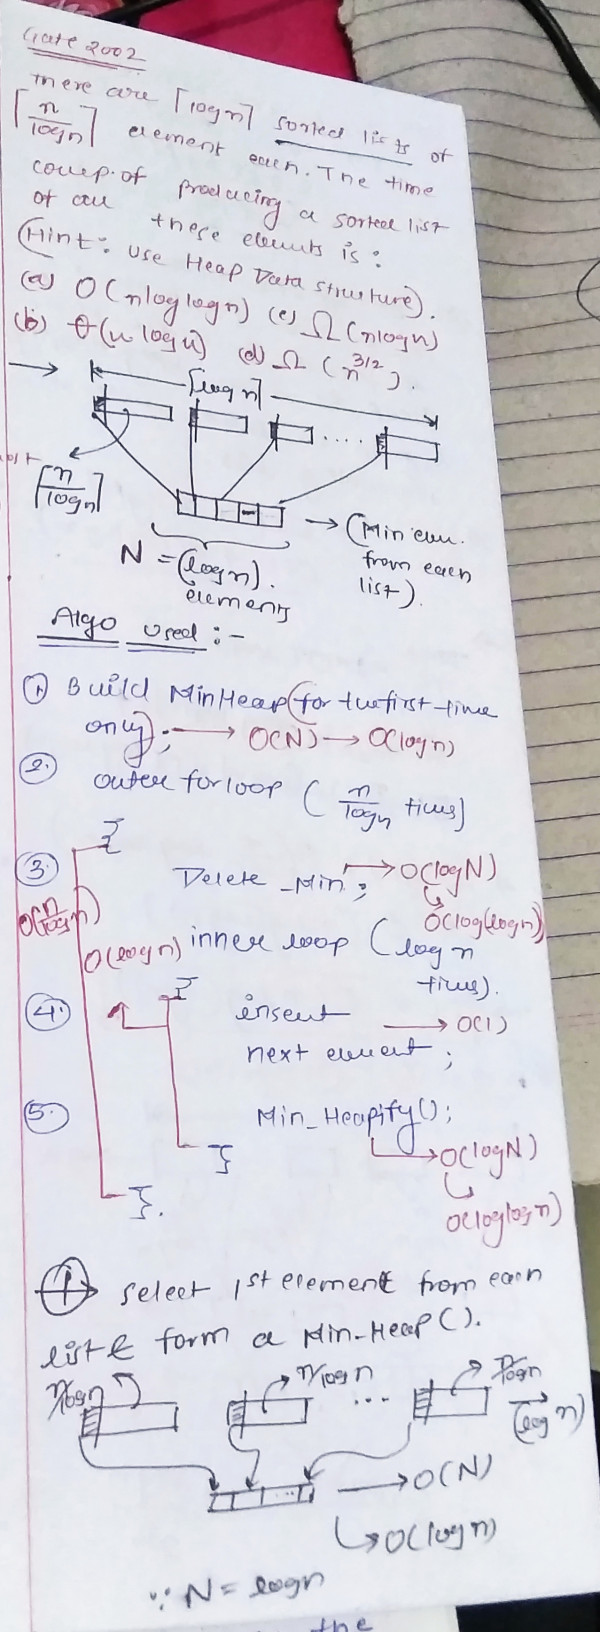 Gate 2002
There are ⌈logn⌉ sorted lists of
⌈n/logn⌉ element each. The time
comp. of producing a sorted list
of all these elements is:
(Hint: Use Heap Data structure).
(a) O(nloglogn) (c) Ω(nlogn)
(b) θ(n logn) (d) Ω(n^3/2).
⌈logn⌉
⌈n/logn⌉
→ (Min elem.
from each
list).
N = (logn).
elements
Algo Used :-
① Build MinHeap (for the first-time
only); → O(N) → O(logn)
② outer for loop (n/logn times)
{
③ Delete_Min; → O(logN)
O(log(logn))
O(n/logn)
O(logn) inner loop (logn
times).
{
④ insert → O(1)
next element;
⑤ Min_Heapify();
→ O(logN)
}
O(loglogn)
}.
① Select 1st element from each
list & form a Min-Heap().
n/logn n/logn ... n/logn
(logn)
→ O(N)
↳ O(logn)
∵ N = logn
the